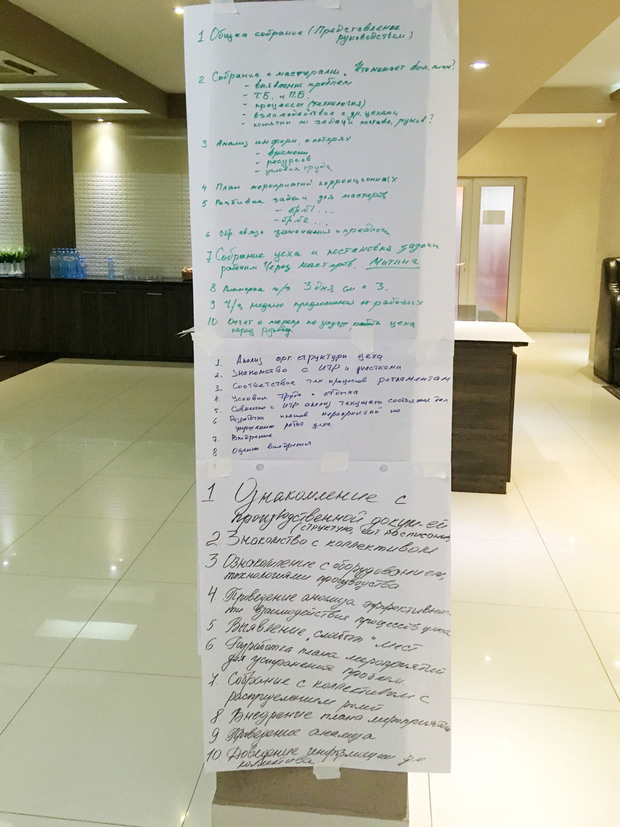 1 Общее собрание (Представление
руководством)
2 Собрание с мастерами. Что мешает вып. план?
- выявление проблем
- Т.Б. и П.Б.
- процессы (технология)
- взаимодействие с др. цехами
- понятны ли задачи поставл. руков?
3 Анализ информ. о потерях
- времени
- ресурсов
- условия труда
4 План мероприятий коррекционных
5 Разбивка задач для мастеров
- бр.№1...
- бр№2...
6 Обр. связь замечания и проблемы
7 Собрание цеха и постановка задачи
рабочим через мастеров. Митинг
8 Планерка 3 дня см + 3.
9 Ч/з неделю предложения от рабочих
10 Отчет о мероп по улучш. цеха
перед руковод.
1. Анализ орг структуры цеха
2. Знакомство с ИТР и участками
3. Соответствие тех процессов регламентам
4. Условия труда и отдыха
5. Совместно с ИТР анализ текущего состояния дел
6 Разработка планов мероприятий по
улучшению работы цеха
7. Внедрение
8 Оценка внедрения
1 Ознакомление с
производственной докум-ей
(структура, шт расписание)
2 Знакомство с коллективом
3 Ознакомление с оборудованием,
технологиями производства
4 Проведение анализа эффективнос-
ти взаимодействия процессов цеха
5 Выявление "слабых" мест
6 Разработка плана мероприятий
для устранения проблем
7 Собрание с коллективом с
распределением ролей
8 Внедрение плана мероприятий
9 Проведение анализа
10 Доведение информации до
коллектива